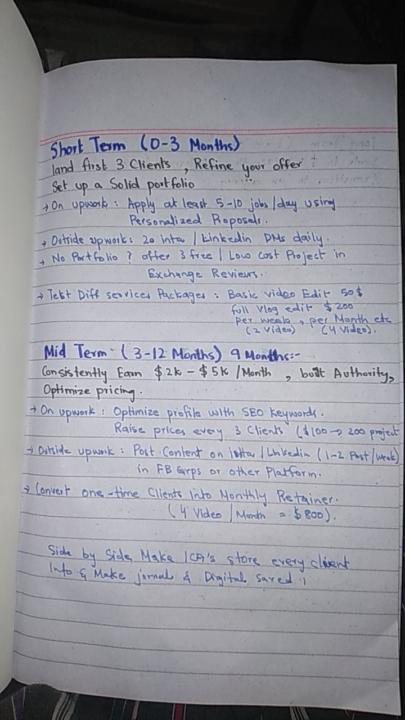 Short Term (0-3 Months)
land first 3 Clients , Refine your offer
Set up a Solid portfolio
→ On upwork : Apply at least 5-10 jobs/day using
Personalized Proposals.
→ Outside upwork: 20 insta / Linkedin DMs daily.
→ No Portfolio ? offer 3 free / Low cost Project in
Exchange Reviews.
→ Test Diff services Packages : Basic video Edit 50$
full vlog edit $200
per week , per Month etc
(2 video) (4 video).
Mid Term (3-12 Months) 9 Months:-
Consistently Earn $2k - $5k /Month , built Authority,
Optimize pricing.
→ On upwork : Optimize profile with SEO Keywords.
Raise prices every 3 Clients ($100 → 200 project
→ Outside upwork : Post Content on Insta / Linkedin (1-2 Post/week)
in FB Grps or other Platform.
→ Convert one-time Clients into Monthly Retainer.
(4 Video / Month = $800).
Side by Side Make store every client
Info & Make jornal & Digital saved !